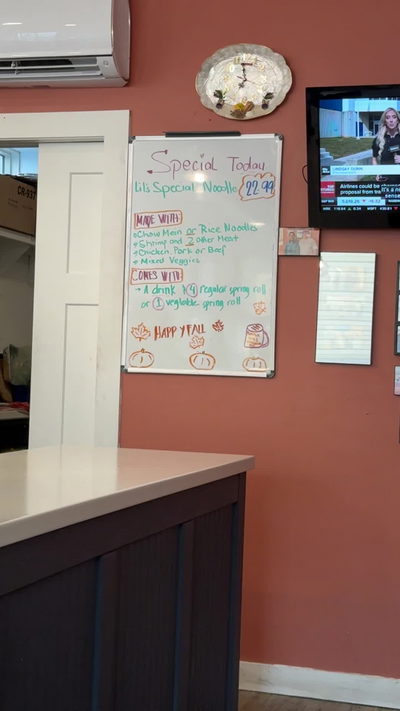 Special Today
Lil's Special Noodle 22.99
MADE WITH
Chow Mein or Rice Noodles
Shrimp and 2 other Meat
Chicken, Pork or Beef
Mixed Veggies
COMES WITH
→ A drink & 4 regular spring roll
or 1 vegtable spring roll
HAPPY FALL
LINDSAY DUNN
Airlines could be
proposal from
CR-937